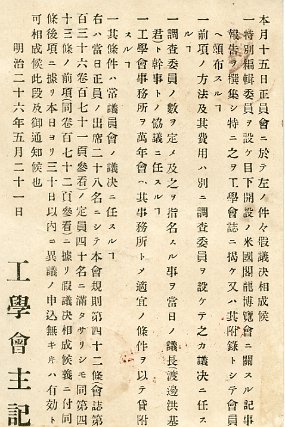 本月十五日正員會ニ於テ左ノ件々假議決相成候
一特別編輯委員ヲ設ケ目下開設ノ米國閣龍博覽會ニ關スル記事
報告ヲ撰集シ特ニ之ヲ工學會誌ニ揭ケ又ハ其附錄トシテ會員
ヘ頒布スルヿ
一前項ノ方法及其費用ハ別ニ調査委員ヲ設ケテ之カ議決ニ任ス
ルヿ
一調査委員ノ數ヲ定メ及之ヲ指名スル事ヲ當日ノ議長渡邊洪基
君ト幹事トノ協議ニ任スルヿ
一工學會事務所ヲ萬年會ヘ其事務所トメ適宜ノ條件ヲ以テ貸附
スルヿ
一其條件ハ常議員會ノ議決ニ任スルヿ
右ハ當日正員ノ出席二十八名ニシテ本會規則第四十二條會誌第
百三十六卷百七十一頁參看ノ定員四十名ニ滿タサリシモ同第四
十三條ノ前項同卷百七十二頁參看ニ據リ假議決相成候義ニ付同
條後項ニ據リ本日ヨリ三十日以內ニ異議ノ申込無キ𪜈ハ有効ト
可相成候此段及御通知候也
明治二十六年五月二十一日
工學會主記